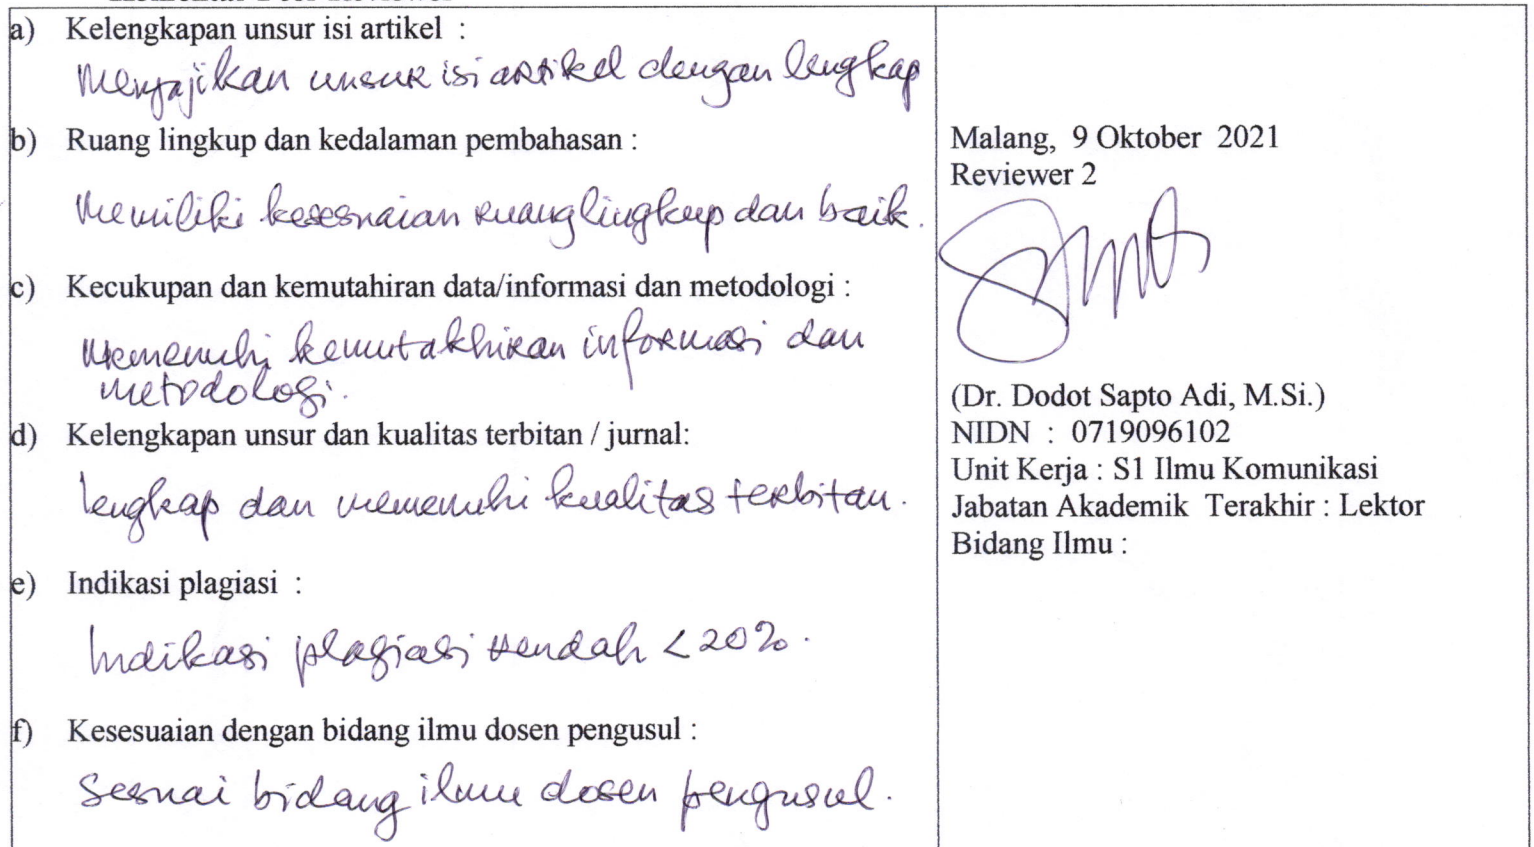 a) Kelengkapan unsur isi artikel :
Menyajikan unsur isi artikel dengan lengkap
b) Ruang lingkup dan kedalaman pembahasan :
Memiliki kesesuaian ruang lingkup dan baik.
c) Kecukupan dan kemutahiran data/informasi dan metodologi :
Memenuhi kemutakhiran informasi dan
metodologi.
d) Kelengkapan unsur dan kualitas terbitan / jurnal:
lengkap dan memenuhi kualitas terbitan.
e) Indikasi plagiasi :
Indikasi plagiasi rendah < 20%.
f) Kesesuaian dengan bidang ilmu dosen pengusul :
Sesuai bidang ilmu dosen pengusul.
Malang, 9 Oktober 2021
Reviewer 2
(Dr. Dodot Sapto Adi, M.Si.)
NIDN : 0719096102
Unit Kerja : S1 Ilmu Komunikasi
Jabatan Akademik Terakhir : Lektor
Bidang Ilmu :